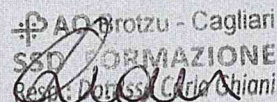 AO Brotzu - Cagliari
SSD FORMAZIONE
Resp.: Dott.ssa Carla Ghiani